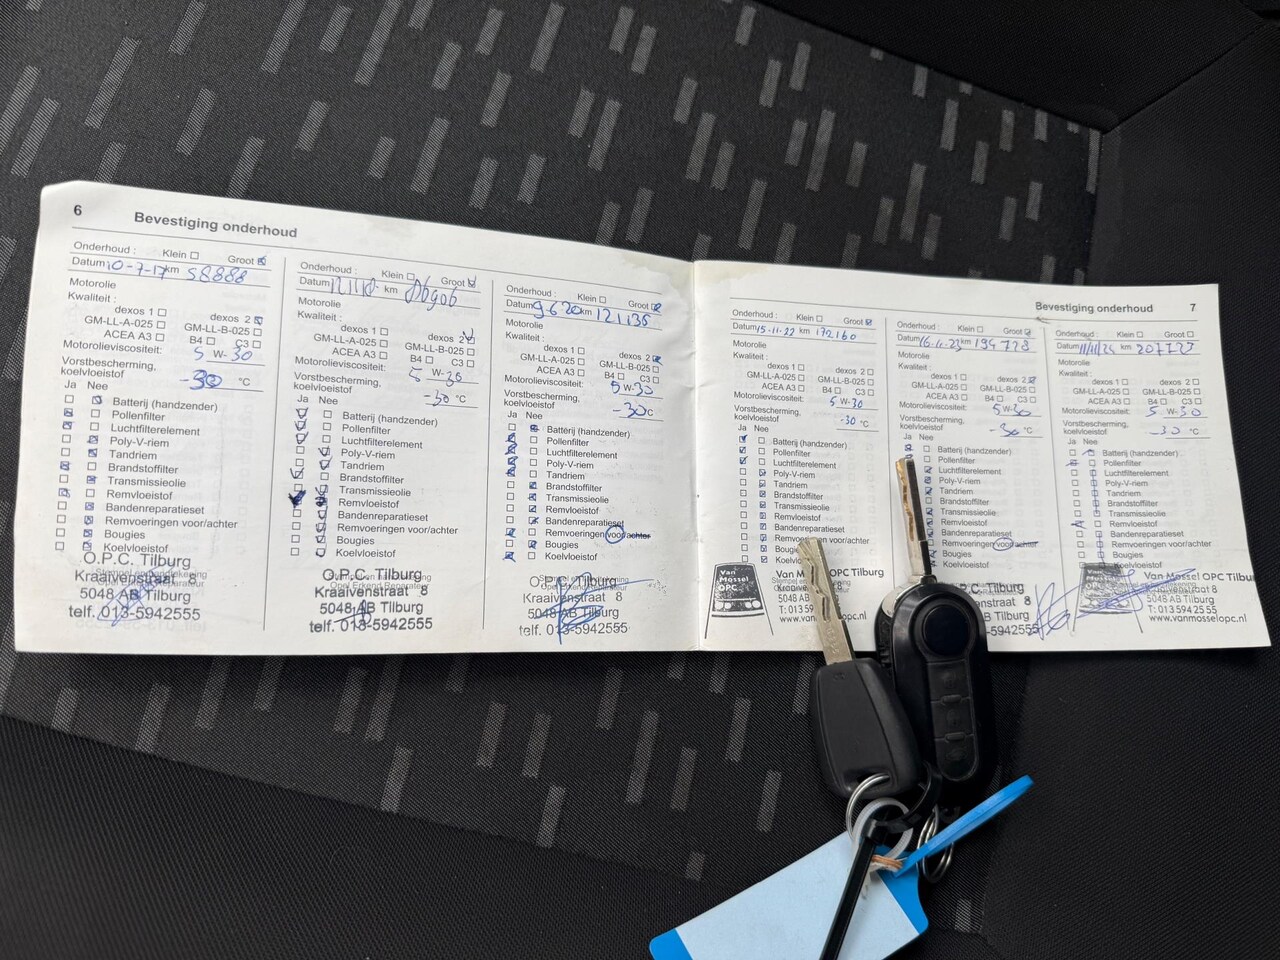 6 Bevestiging onderhoud
Onderhoud : Klein Groot
Datum 10-7-17 km 58888
Motorolie
Kwaliteit :
dexos 1 dexos 2
GM-LL-A-025 GM-LL-B-025
ACEA A3 B4 C3
Motorolieviscositeit: 5 W-30
Vorstbescherming,
koelvloeistof -30 °C
Ja Nee
Batterij (handzender)
Pollenfilter
Luchtfilterelement
Poly-V-riem
Tandriem
Brandstoffilter
Transmissieolie
Remvloeistof
Bandenreparatieset
Remvoeringen voor/achter
Bougies
Koelvloeistof
O.P.C. Tilburg
Kraaivenstraat 8
5048 AB Tilburg
telf. 013-5942555
Onderhoud : Klein Groot
Datum km
Motorolie
Kwaliteit :
dexos 1 dexos 2
GM-LL-A-025 GM-LL-B-025
ACEA A3 B4 C3
Motorolieviscositeit: 5 W-30
Vorstbescherming,
koelvloeistof -30 °C
Ja Nee
Batterij (handzender)
Pollenfilter
Luchtfilterelement
Poly-V-riem
Tandriem
Brandstoffilter
Transmissieolie
Remvloeistof
Bandenreparatieset
Remvoeringen voor/achter
Bougies
Koelvloeistof
O.P.C. Tilburg
Kraaivenstraat 8
5048 AB Tilburg
telf. 013-5942555
Onderhoud : Klein Groot
Datum 9 6 20 km 121135
Motorolie
Kwaliteit :
dexos 1 dexos 2
GM-LL-A-025 GM-LL-B-025
ACEA A3 B4 C3
Motorolieviscositeit: 5 W-30
Vorstbescherming,
koelvloeistof -30 C
Ja Nee
Batterij (handzender)
Pollenfilter
Luchtfilterelement
Poly-V-riem
Tandriem
Brandstoffilter
Transmissieolie
Remvloeistof
Bandenreparatieset
Remvoeringen voor/achter
Bougies
Koelvloeistof
O.P.C. Tilburg
Kraaivenstraat 8
5048 AB Tilburg
telf. 013-5942555
Bevestiging onderhoud 7
Onderhoud : Klein Groot
Datum 15-11-22 km 172160
Motorolie
Kwaliteit :
dexos 1 dexos 2
GM-LL-A-025 GM-LL-B-025
ACEA A3 B4 C3
Motorolieviscositeit: 5 W-30
Vorstbescherming,
koelvloeistof -30 °C
Ja Nee
Batterij (handzender)
Pollenfilter
Luchtfilterelement
Poly-V-riem
Tandriem
Brandstoffilter
Transmissieolie
Remvloeistof
Bandenreparatieset
Bougies
Van Mossel OPC
Van Mossel OPC Tilburg
5048 AB
Onderhoud : Klein Groot
Datum km
Motorolie
Kwaliteit :
dexos 1 dexos 2
GM-LL-A-025 GM-LL-B-025
ACEA A3 B4 C3
Motorolieviscositeit: 5 W-30
Vorstbescherming,
koelvloeistof -30 °C
Ja Nee
Batterij (handzender)
Pollenfilter
Luchtfilterelement
Poly-V-riem
Tandriem
Brandstoffilter
Transmissieolie
Remvloeistof
Bandenreparatieset
Remvoeringen voor/achter
Bougies
Koelvloeistof
Tilburg
8
AB Tilburg
Onderhoud : Klein Groot
Datum km
Motorolie
Kwaliteit :
dexos 1 dexos 2
GM-LL-A-025 GM-LL-B-025
ACEA A3 B4 C3
Motorolieviscositeit: 5 W-30
Vorstbescherming,
koelvloeistof -30 °C
Ja Nee
Batterij (handzender)
Pollenfilter
Luchtfilterelement
Poly-V-riem
Tandriem
Brandstoffilter
Transmissieolie
Remvloeistof
Bandenreparatieset
Remvoeringen voor/achter
Bougies
Koelvloeistof
Van Mossel OPC Tilburg
5048 AB Tilburg
T: 013 5942 555
www.vanmosselopc.nl